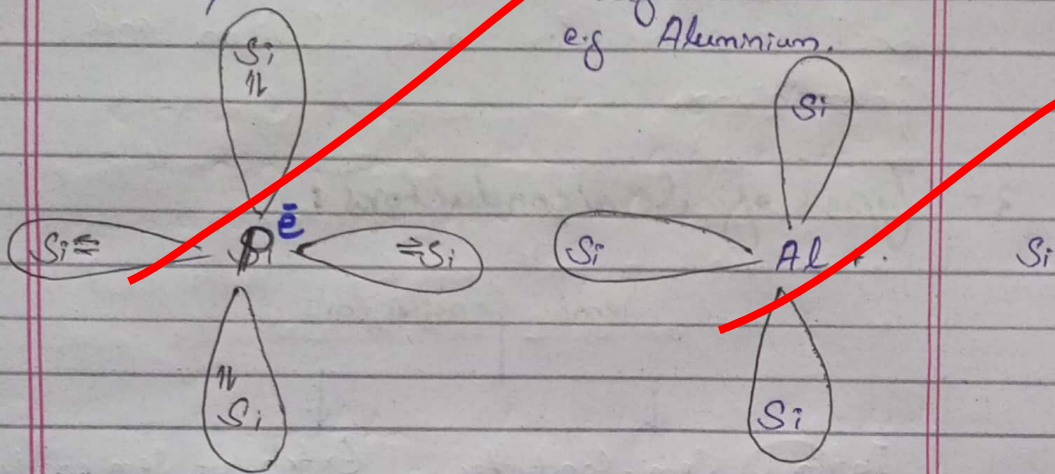 e.g Aluminium.
Si
Si
Si
P
ē
Si
Si
Al
Si
Si
Si